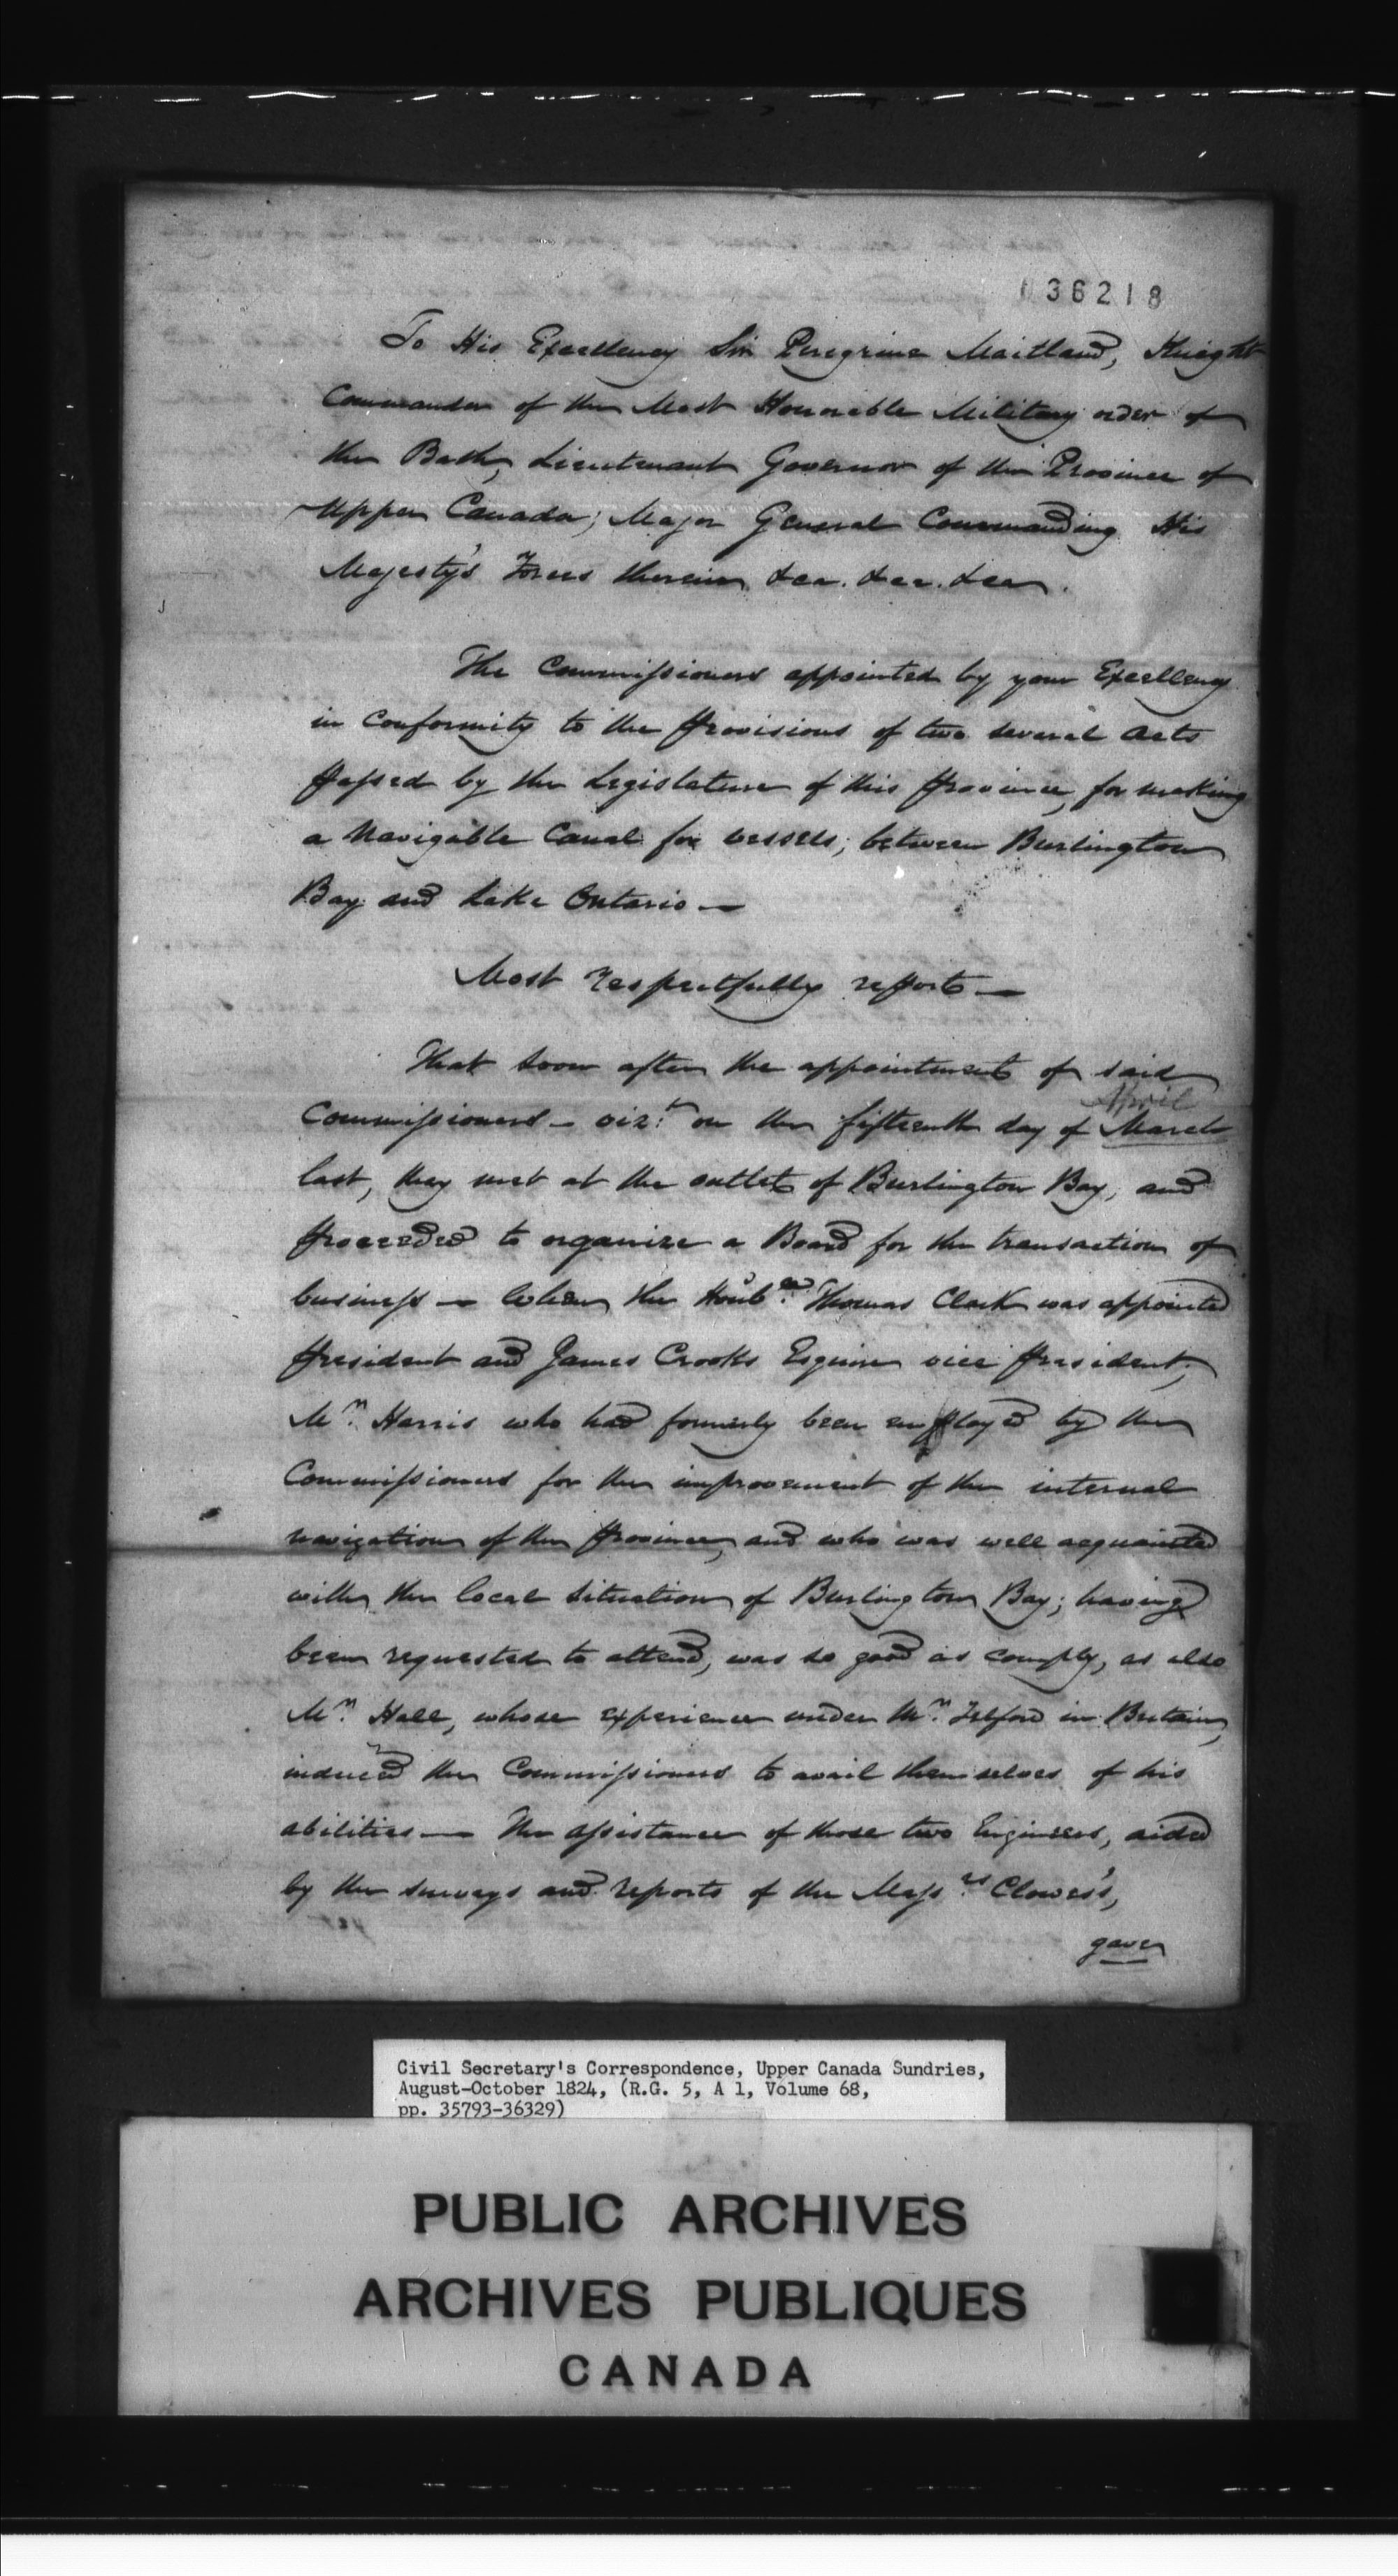 036218
To His Excellency Sir Peregrine Maitland, Knight
Commander of the Most Honorable Military order of
the Bath, Lieutenant Governor of the Province of
Upper Canada, Major General Commanding His
Majesty's Forces therein &ca. &ca. &ca.
The Commissioners appointed by your Excellency
in Conformity to the provisions of two several Acts
passed by the Legislature of this province, for making
a Navigable Canal for vessels, between Burlington
Bay and Lake Ontario —
Most respectfully report —
That soon after the appointment of said
April
Commissioners — vizt. on the fifteenth day of March
last, they met at the outlet of Burlington Bay, and
proceeded to organize a Board for the transaction of
business — when the Honble. Thomas Clark was appointed
president and James Crooks Esquire vice president,
Mr. Harris who had formerly been employed by the
Commissioners for the improvement of the internal
navigation of the province, and who was well acquainted
with the local situation of Burlington Bay; having
been requested to attend, was so good as comply, as also
Mr. Hall, whose experience under Mr. Telford in Britain,
induced the Commissioners to avail themselves of his
abilities — The assistance of those two Engineers, aided
by the surveys and reports of the Messrs. Clowes's,
gave
Civil Secretary's Correspondence, Upper Canada Sundries,
August-October 1824, (R.G. 5, A 1, Volume 68,
pp. 35793-36329)
PUBLIC ARCHIVES
ARCHIVES PUBLIQUES
CANADA